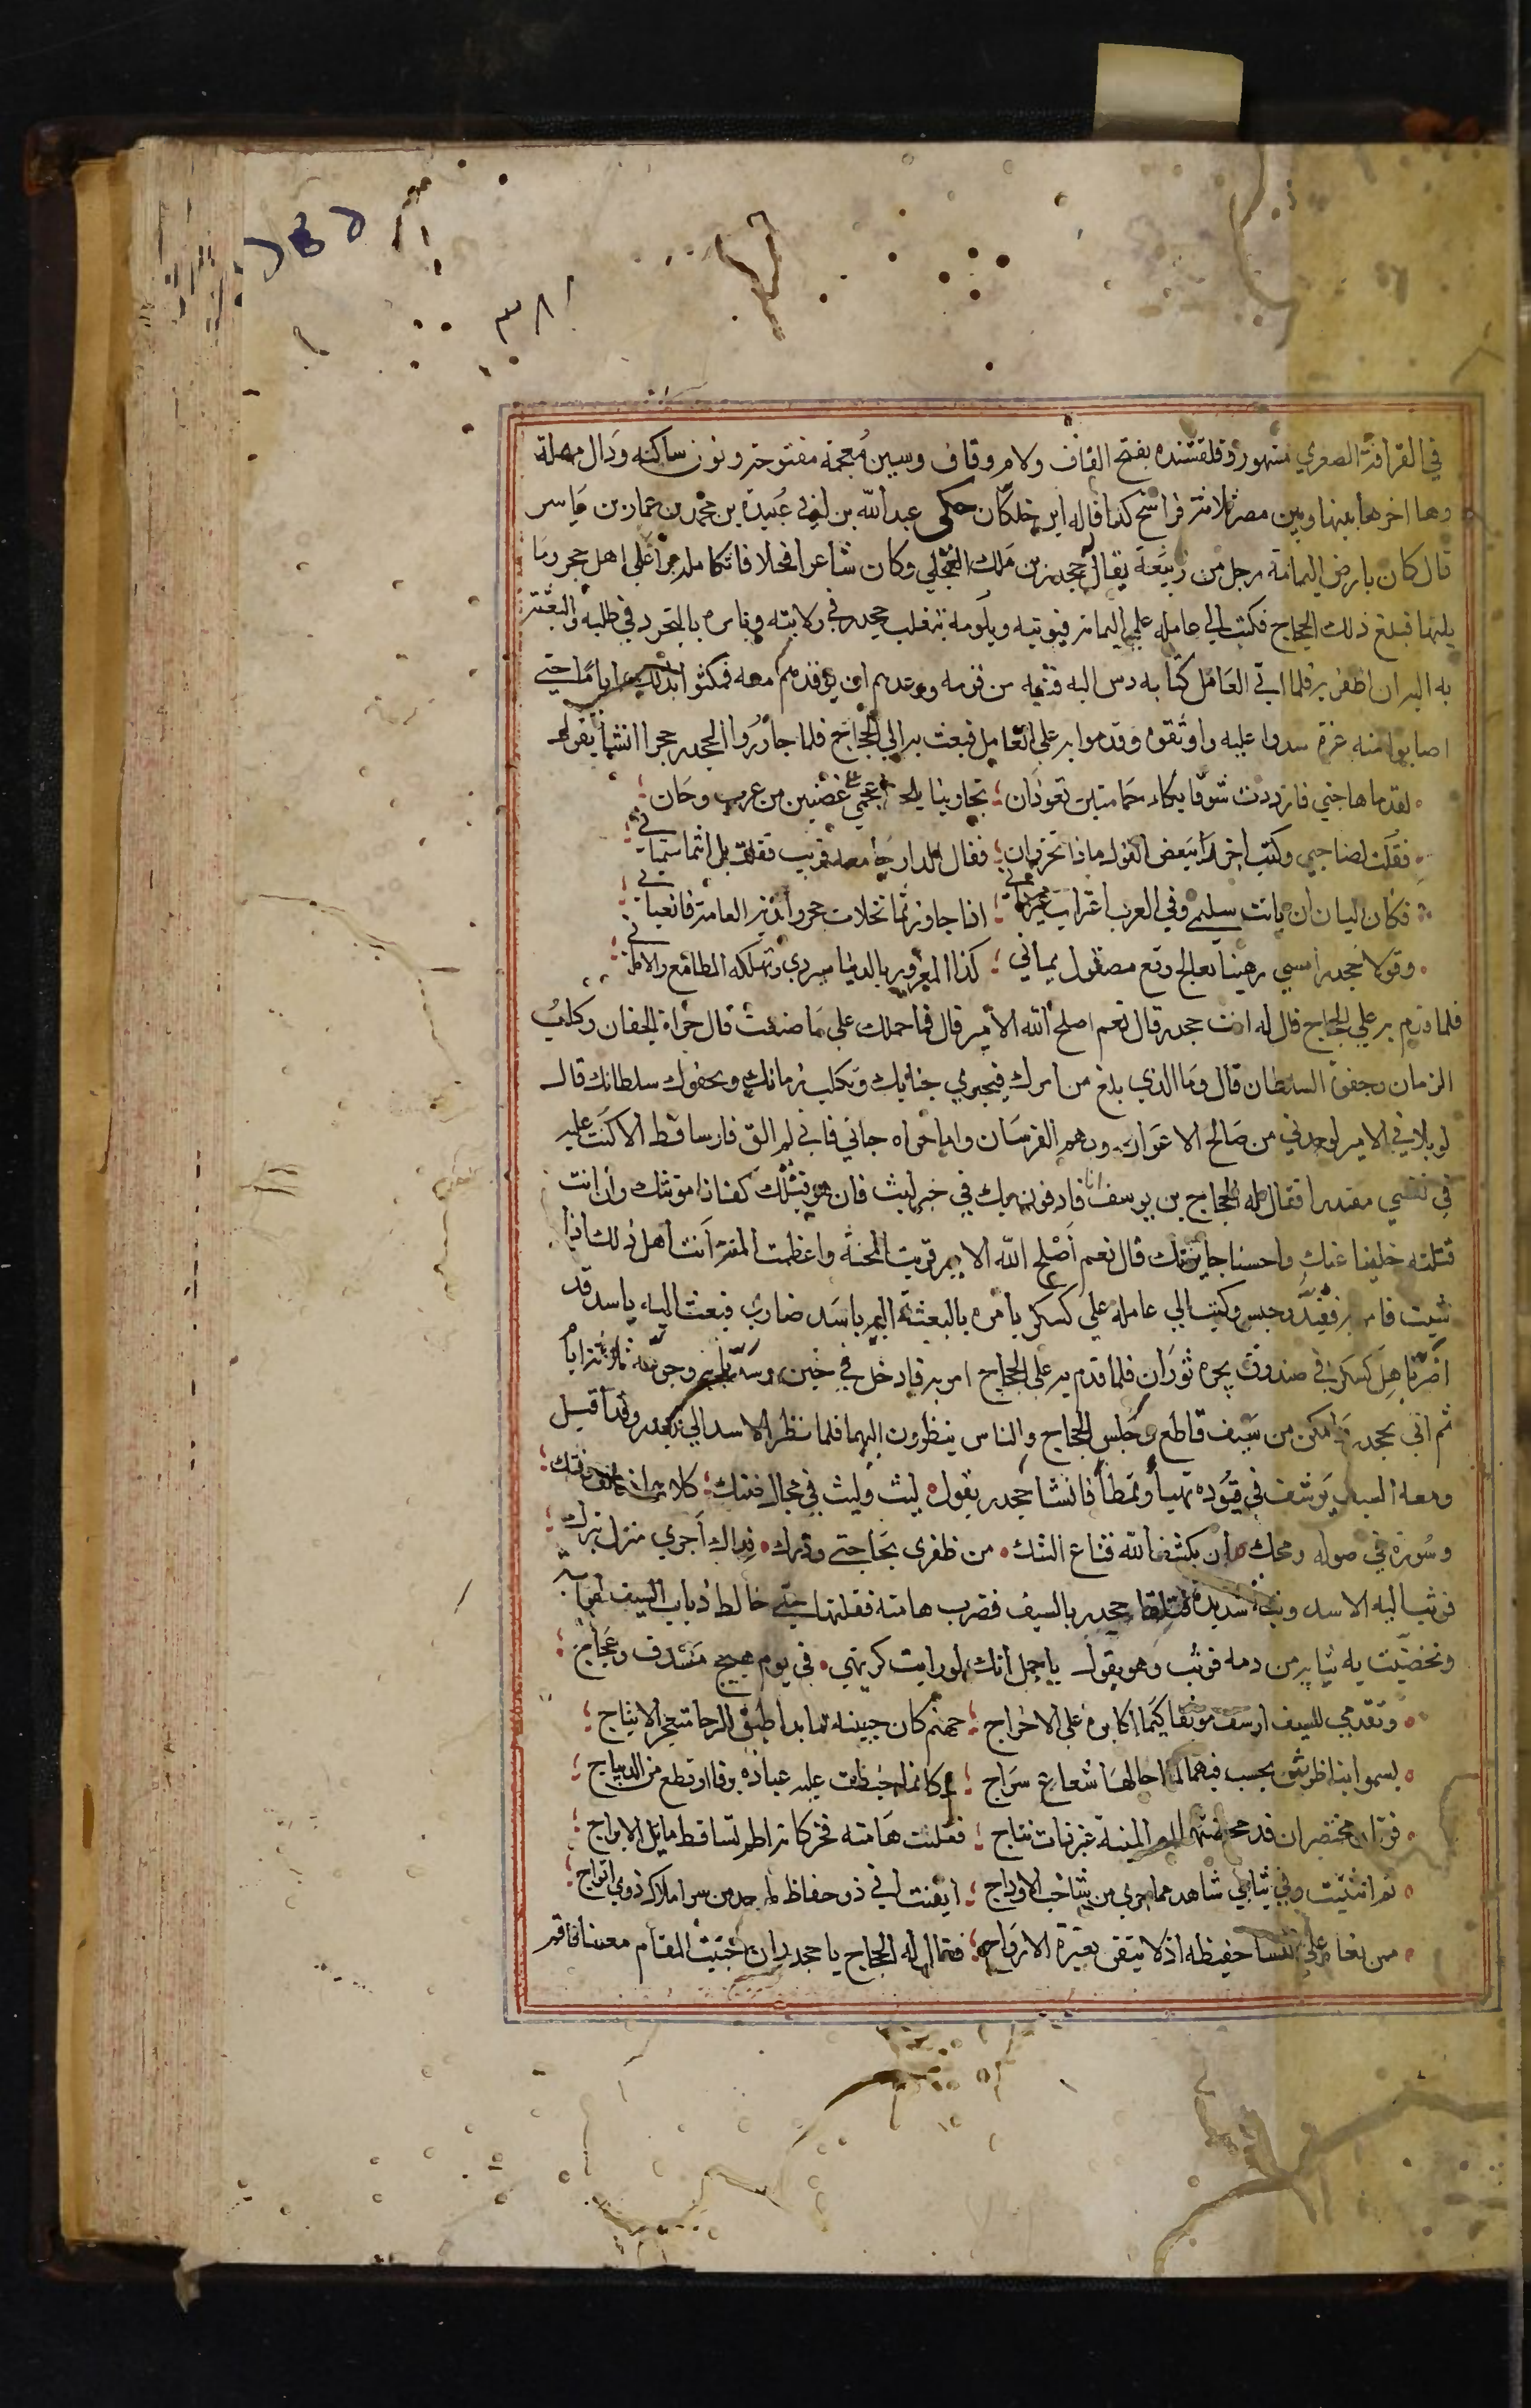 ٣٨١
في القرافة الصغري مشهور وقلقشنده بفتح القاف ولام وقاف وشين مُعجمة مفتوحة ونون ساكنه ودَال مهملة
وها اخرها بينها وبين مصر ثلاثة فراسخ كذا قاله ابن خلكان حكى عبد الله بن ابي عُبيدة بن محمد بن عمار بن يَاسر
قال كان بارض اليمامة رجل من ربيعة يقال جحدر بن مَلك العجلي وكان شاعرا فحلا فاتكا على اهل حجر وما
يليها فبلغ ذلك الحجاج فكتب الي عامله على اليمامة فيوبته ويلومه بتغلب جحدر في ولايته ويامره بالتجرد في طلبه والبعثة
به اليه ان اظفر به فلما اتي العَامل كتابه دس اليه فتيه من قومه ووعدهم ان يوفدهم معه فمكثوا لذلك ايامًا حتي
اصابوا منه غرة شدوا عليه واوثقوه وقدموا به على العَامل فبعث به الي الحجاج فلما جاوزوا بجحدر حجرا انشأ يقول
لقد ما هاجني فازددت شوقا بكاء حَمامتين تغردان ؛ تجاوبتا بلحن اعجمي على غصنين من غرب وبَان ؛
فقلت لصاحبي وكنت اخر ببعض القول ماذا تخزيان ؛ فقال الدار جامعة قريب فقلت بل انتما تمنياني ؛
فكان البان ان بانت سليمى وفي الغرب اغتراب غير داني ؛ اذا جاوزتما نخلات حجر وأندية اليمامة فانعياني ؛
وقولا جحدر امسي رهينا يعالج وقع مصقول يماني ؛ كذا المغرور بالدنيا سيردي وتهلكه المطامع والاماني ؛
فلما قدم به علي الحجاج قال له انت جحدر قال نعم اصلح الله الأمير قال فما حملك علي مَا صنعت قال جراة الجنان وكلبُ
الزمان وجفوة السلطان قال ومَا الذي بلغ من امرك فيجتري جنانك ويَكلب زمانك ويجفوك سلطانك قال
لو بلاني الامير لوجدني من صَالح الاعوان وبهم الفرسَان واما جراة جناني فاني لم الق فارسا قط الا كنت عليه
في نفسي مقتدرا فقال له الحجاج بن يوسف انا قاذفون بك في جب ليث فان هو قتلك كفانا مؤنتك وأن انت
قتلته خلينا عنك واحسنا جايزتك قال نعم اَصْلح الله الامير قربت المحنة واعظمت المنة اَنت اهل ذلك اذا
شيت فامر به فقيّد وحبس وكتب الي عامله علي كسكر يامره بالبعثة اليه باسَد ضاري فبعث اليه باسد قد
اضر باهل كسكر في صندوق يجره ثورَان فلما قدم به على الحجاج امر به فادخل في حَيْن وسدّ بابه وجوعه ثلاثة ايام
ثم اتي بجحدر وامكن من سَيف قاطع وجَلس الحجاج والناس ينظرون اليهما فلما نظر الاسد الي جحدر وقد اقبل
ومعه السيف يَرسف في قيُوده تهيأ وتمطأ فانشا جحدر يقول ليث وليث في مجال ضنك ؛ كلاهما ذو انف وفتك ؛
وسُورة في صوله ومحك ان يكشف الله قناع الشك من ظفرى بحَاجتي ودرك فذاك أحرى منزل بترك ؛
فوثب اليه الاسد وثبة شديدة فتلقاه جحدر بالسيف فضرب هامته ففلقها حتي خالط ذباب السيف لهاته
وتخضبت به ثيابه من دمه فوثب وهو يقول يا جمل انك لو رايت كريهتي في يوم هيج مَسْدف وعَجَاج ؛
وتقدمي لليث ارسف موثقا كيَما اكابره على الاخراج ؛ جهنم كان جبينه لما بدا طبق الرحا متفجر الاثباج ؛
يسموا بناظرتين تحسب فيهما لما احالهَا شعاع سرَاج ؛ وكانما خيطت عليه عباءة برقا او قطع من الديباج ؛
قرنان محتضران قد محضتهما ام المنية غير ذات نتاج ؛ ففلقت هَامته فخر كانه اطم تساقط مايل الابراج ؛
ثم انثنيت وفي ثيابي شاهد مما جري من شاخب الاوداج ؛ ايقنت اني ذو حفاظ ماجد من سر املاك ذوي اتواج ؛
ممن يغار علي النسا حفيظه اذ لا يثقن بغيرة الازواج ؛ فقال له الحجاج يا جحدر ان احببت المقام معنا فاقم